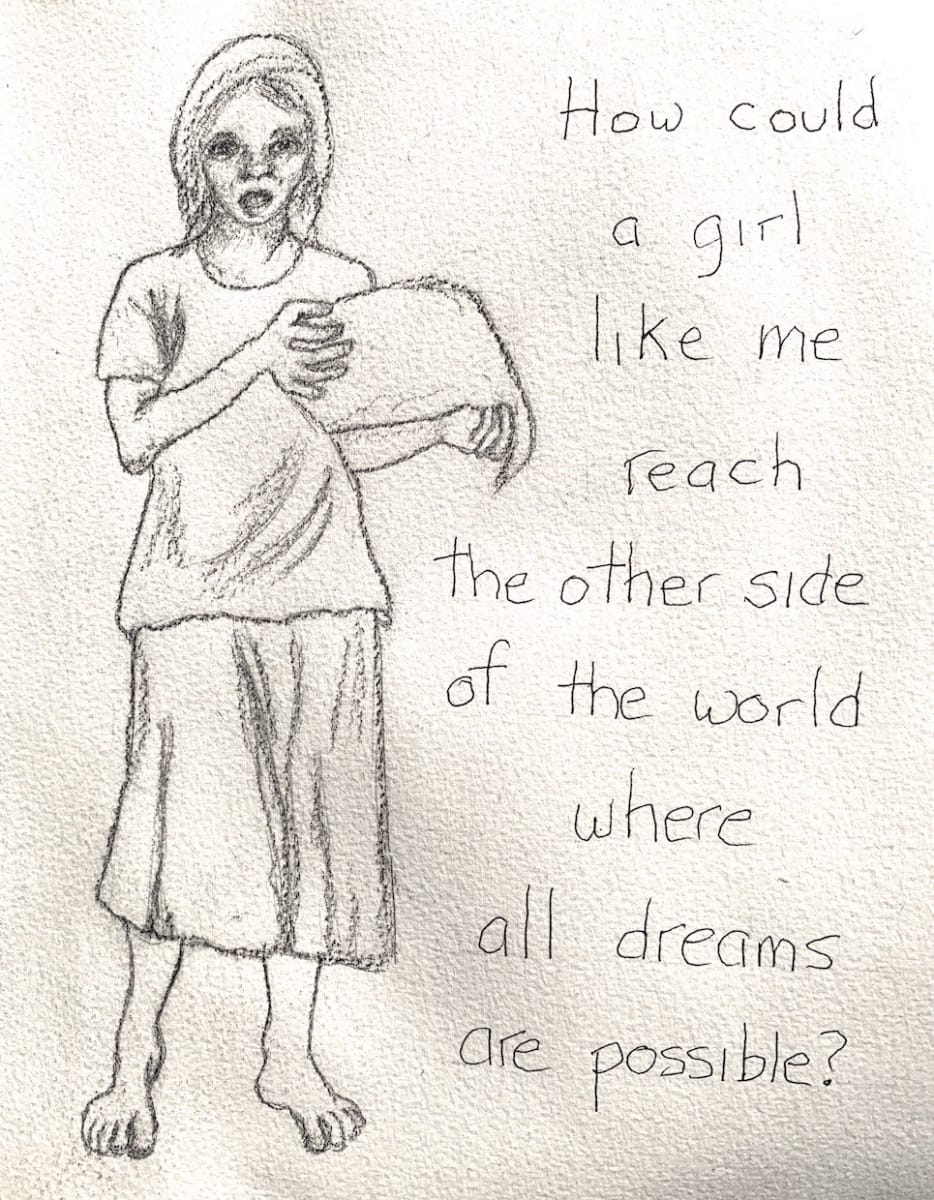 How could
a girl
like me
reach
the other side
of the world
where
all dreams
are possible?